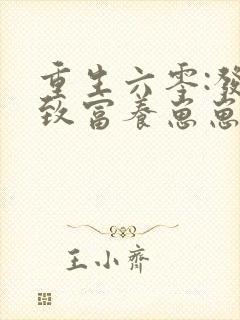 重生六零:發
致富養崽崽
王小齊